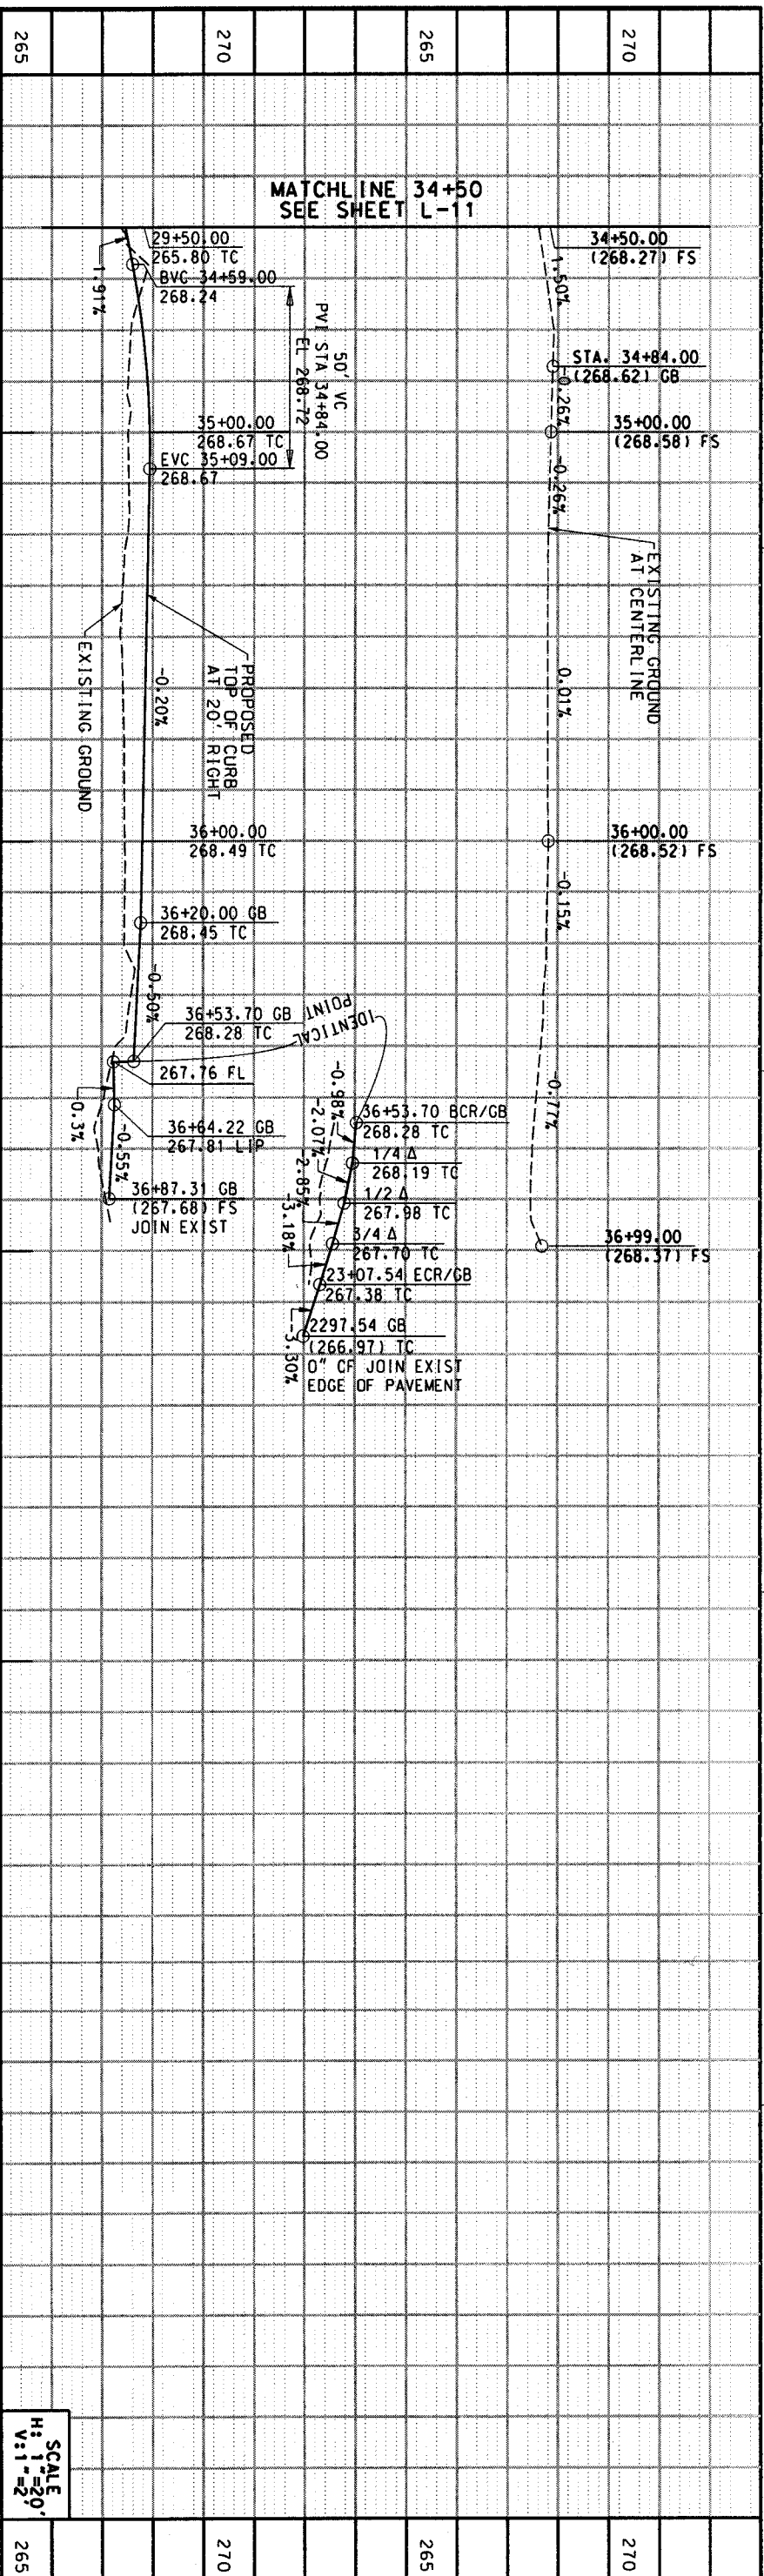 265
270
265
270
MATCHLINE 34+50
SEE SHEET L-11
29+50.00
265.80 TC
BVC 34+59.00
268.24
1.91%
50' VC
PVI STA 34+84.00
EL 268.72
35+00.00
268.67 TC
EVC 35+09.00
268.67
34+50.00
(268.27) FS
1.50%
STA. 34+84.00
(268.62) GB
-0.26%
35+00.00
(268.58) FS
-0.26%
EXISTING GROUND
AT CENTERLINE
0.01%
36+00.00
(268.52) FS
-0.15%
-0.77%
36+99.00
(268.37) FS
PROPOSED
TOP OF CURB
AT 20' RIGHT
-0.20%
EXISTING GROUND
36+00.00
268.49 TC
36+20.00 GB
268.45 TC
-0.50%
36+53.70 GB
268.28 TC
IDENTICAL
POINT
267.76 FL
0.3%
36+64.22 GB
267.81 LIP
-0.55%
36+87.31 GB
(267.68) FS
JOIN EXIST
36+53.70 BCR/GB
268.28 TC
-0.98%
1/4 Δ
268.19 TC
-2.07%
1/2 Δ
267.98 TC
-2.85%
3/4 Δ
267.70 TC
-3.18%
23+07.54 ECR/GB
267.38 TC
-3.30%
2297.54 GB
(266.97) TC
0" CF JOIN EXIST
EDGE OF PAVEMENT
SCALE
H: 1"=20'
V:1"=2'
265
270
265
270